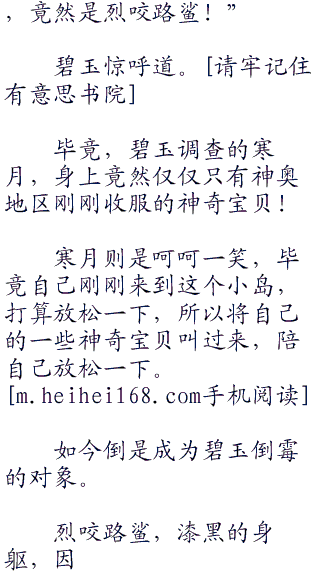 ，竟然是烈咬路鲨！”
碧玉惊呼道。[请牢记住
有意思书院]
毕竟，碧玉调查的寒
月，身上竟然仅仅只有神奥
地区刚刚收服的神奇宝贝！
寒月则是呵呵一笑，毕
竟自己刚刚来到这个小岛，
打算放松一下，所以将自己
的一些神奇宝贝叫过来，陪
自己放松一下。
[m.heihei168.com手机阅读]
如今倒是成为碧玉倒霉
的对象。
烈咬路鲨，漆黑的身
躯，因